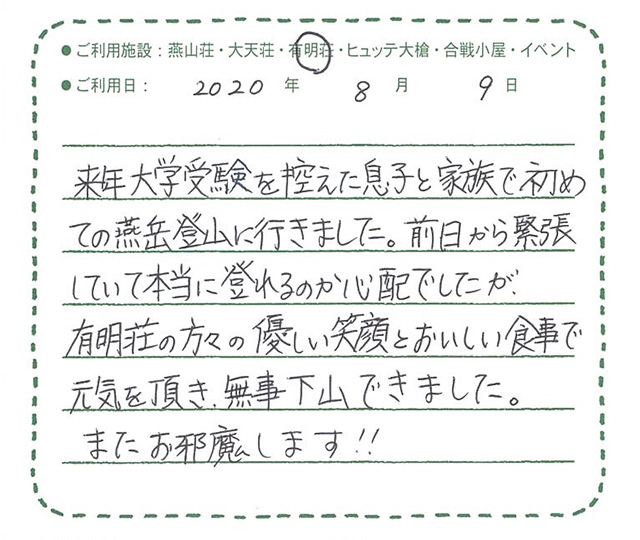 ●ご利用施設：燕山荘・大天荘・有明荘・ヒュッテ大槍・合戦小屋・イベント
●ご利用日： 2020 年 8 月 9 日
来年大学受験を控えた息子と家族で初め
ての燕岳登山に行きました。前日から緊張
していて本当に登れるのか心配でしたが、
有明荘の方々の優しい笑顔とおいしい食事で
元気を頂き、無事下山できました。
またお邪魔します!!